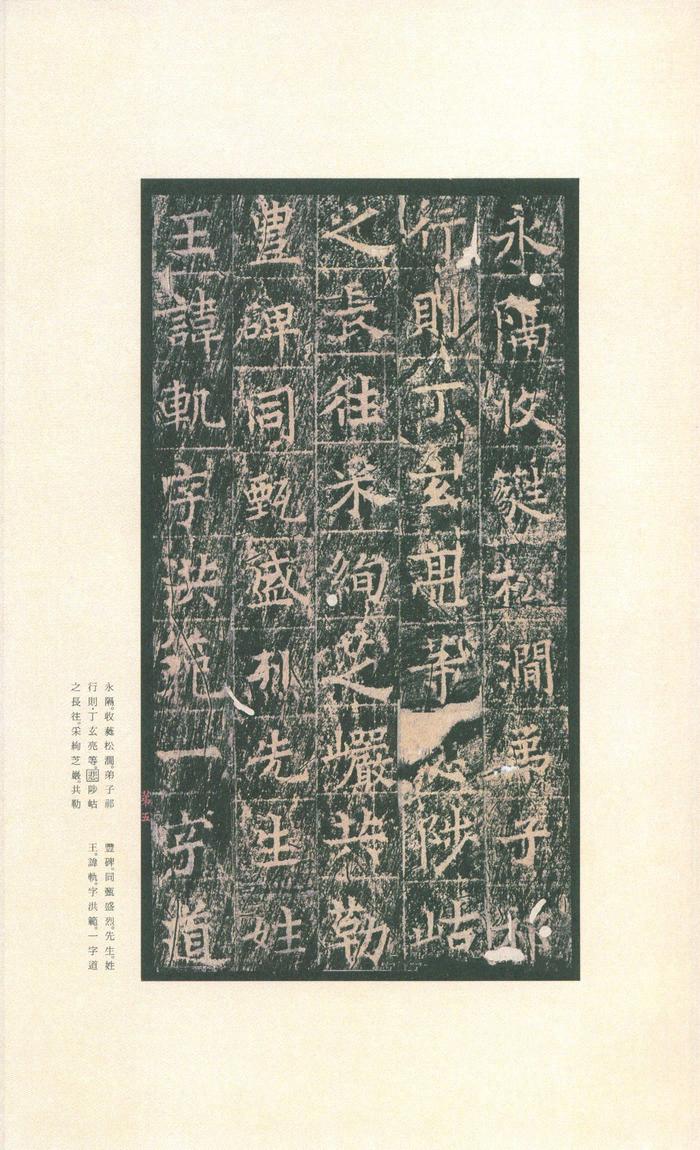 永隔收蕤松澗弟子祁
行則丁玄亮等陟岵
之長往采絢芝巖共勒
豐碑同甄盛烈先生姓
王諱軌字洪範一字道
第五
永隔。收蕤松澗。弟子祁
行則·丁玄亮等。悲陟岵
之長往。采絢芝巖。共勒
豐碑。同甄盛烈。先生。姓
王。諱軌。字洪範。一字道